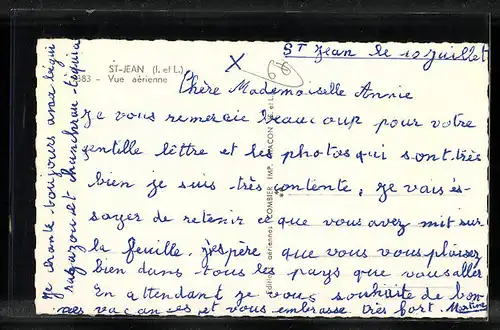 ST-JEAN (I. et L.)
583 - Vue aérienne
St Jean le 10 juillet
Chère Mademoiselle Annie
Je vous remercie beaucoup pour votre
gentille lêttre et les photos qui sont très
bien je suis très contente, je vais és-
sayer de retenir ce que vous avez mit sur
la feuille. j'espère que vous vous plaisez
bien dans tous les pays que vous allez
En attendant je vous souhaite de bon-
nes vacances et vous embrasse très fort. Martine
Je chante toujours
et
COMBIER IMP. MACON
aériennes